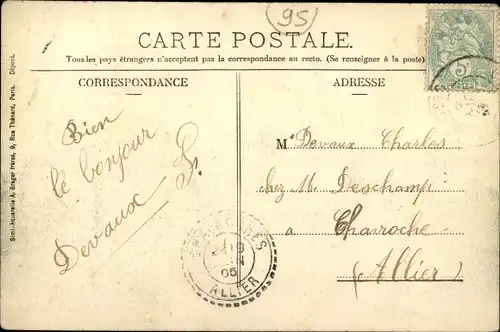 95
CARTE POSTALE.
Tous les pays étrangers n'acceptent pas la correspondance au recto. (Se renseigner à la poste)
CORRESPONDANCE
Bien
le bonjour
Devaux
ADRESSE
M Devaux Charles
chez M. Deschamp
a Chavroche
(Allier)
05
ALLIER
5
Simi-Aquarelle A. Breger Frères, 9, Rue Thénard, Paris. Déposé.